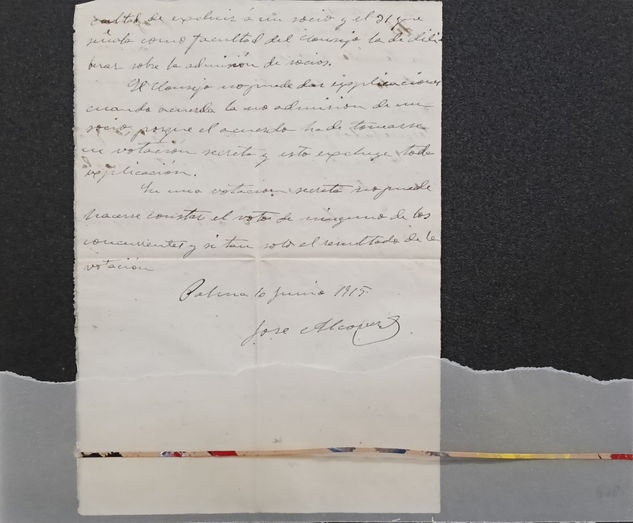 cultad de excluir á un socio y el 21 que
señala como facultad del Consejo la de deli-
berar sobre la admisión de socios.
El Consejo no puede dar explicaciones
cuando acuerda la no admision de un
socio, porque el acuerdo ha de tomarse
en votación secreta y esto excluye toda
explicación.
En una votacion secreta no puede
hacerse constar el voto de ninguno de los
concurrentes y si tan solo el resultado de la
votación
Palma 10 Junio 1915.
Jose Alcover